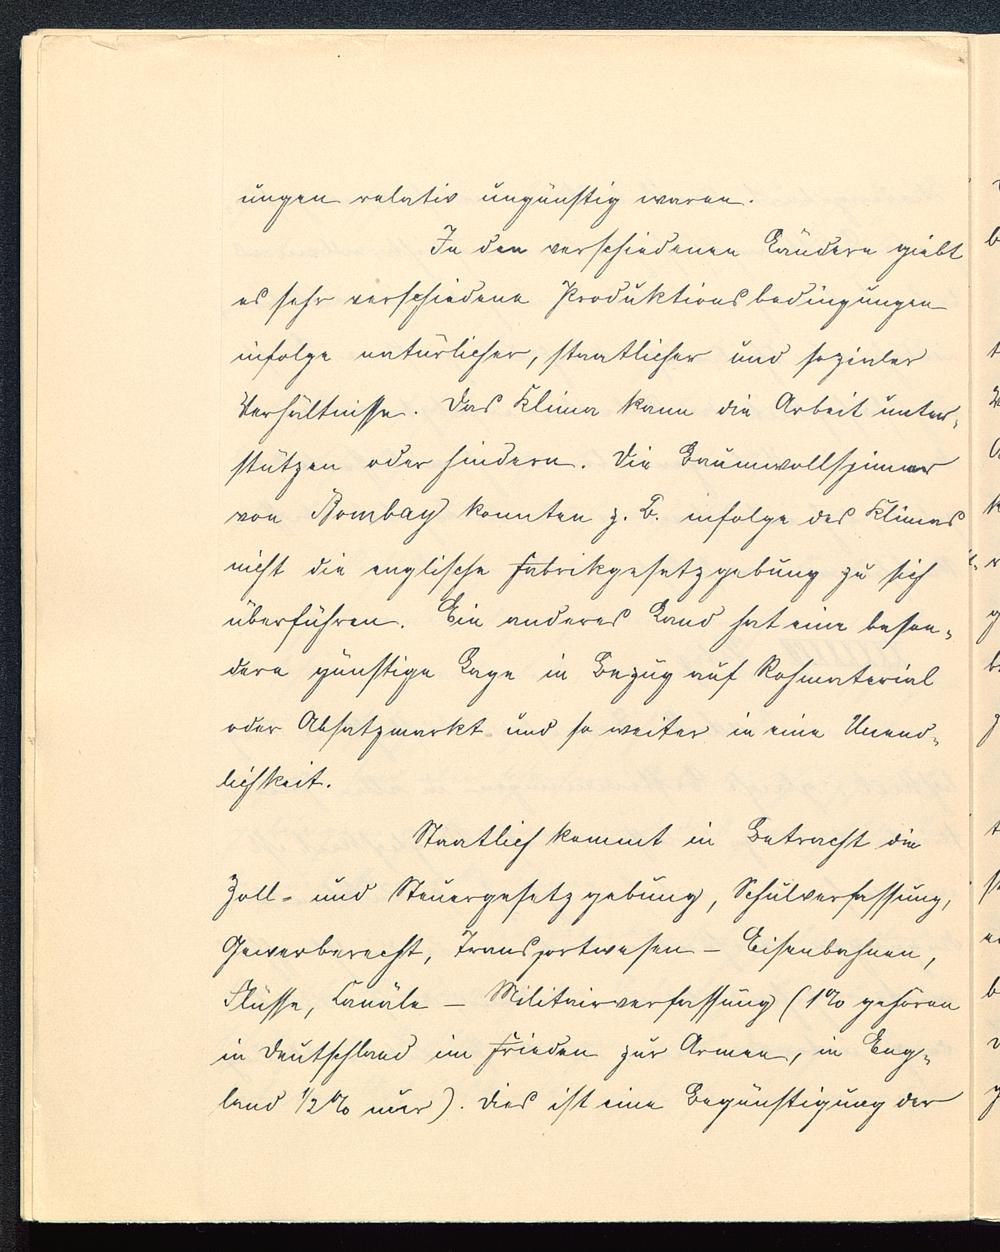 ungen relativ ungünstig waren.
In den verschiedenen Ländern giebt
es sehr verschiedene Produktionsbedingungen
infolge natürlicher, staatlicher und sozialer
Verhältnisse. Das Klima kann die Arbeit unter-
stützen oder hindern. Die Baumwollspinner
von Bombay konnten z. B. infolge des Klimas
nicht die englische Fabrikgesetzgebung zu sich
überführen. Ein anderes Land hat eine beson-
dere günstige Lage in Bezug auf Rohmaterial
oder Absatzmarkt und so weiter in eine Unend-
lichkeit.
Staatlich kommt in Betracht die
Zoll- und Steuergesetzgebung, Schulverfassung,
Gewerberecht, Transportwesen – Eisenbahnen,
Flüsse, Canäle – Militairverfassung (1% gehören
in Deutschland im Frieden zur Armee, in Eng-
land ½% nur). Dies ist eine Begünstigung der